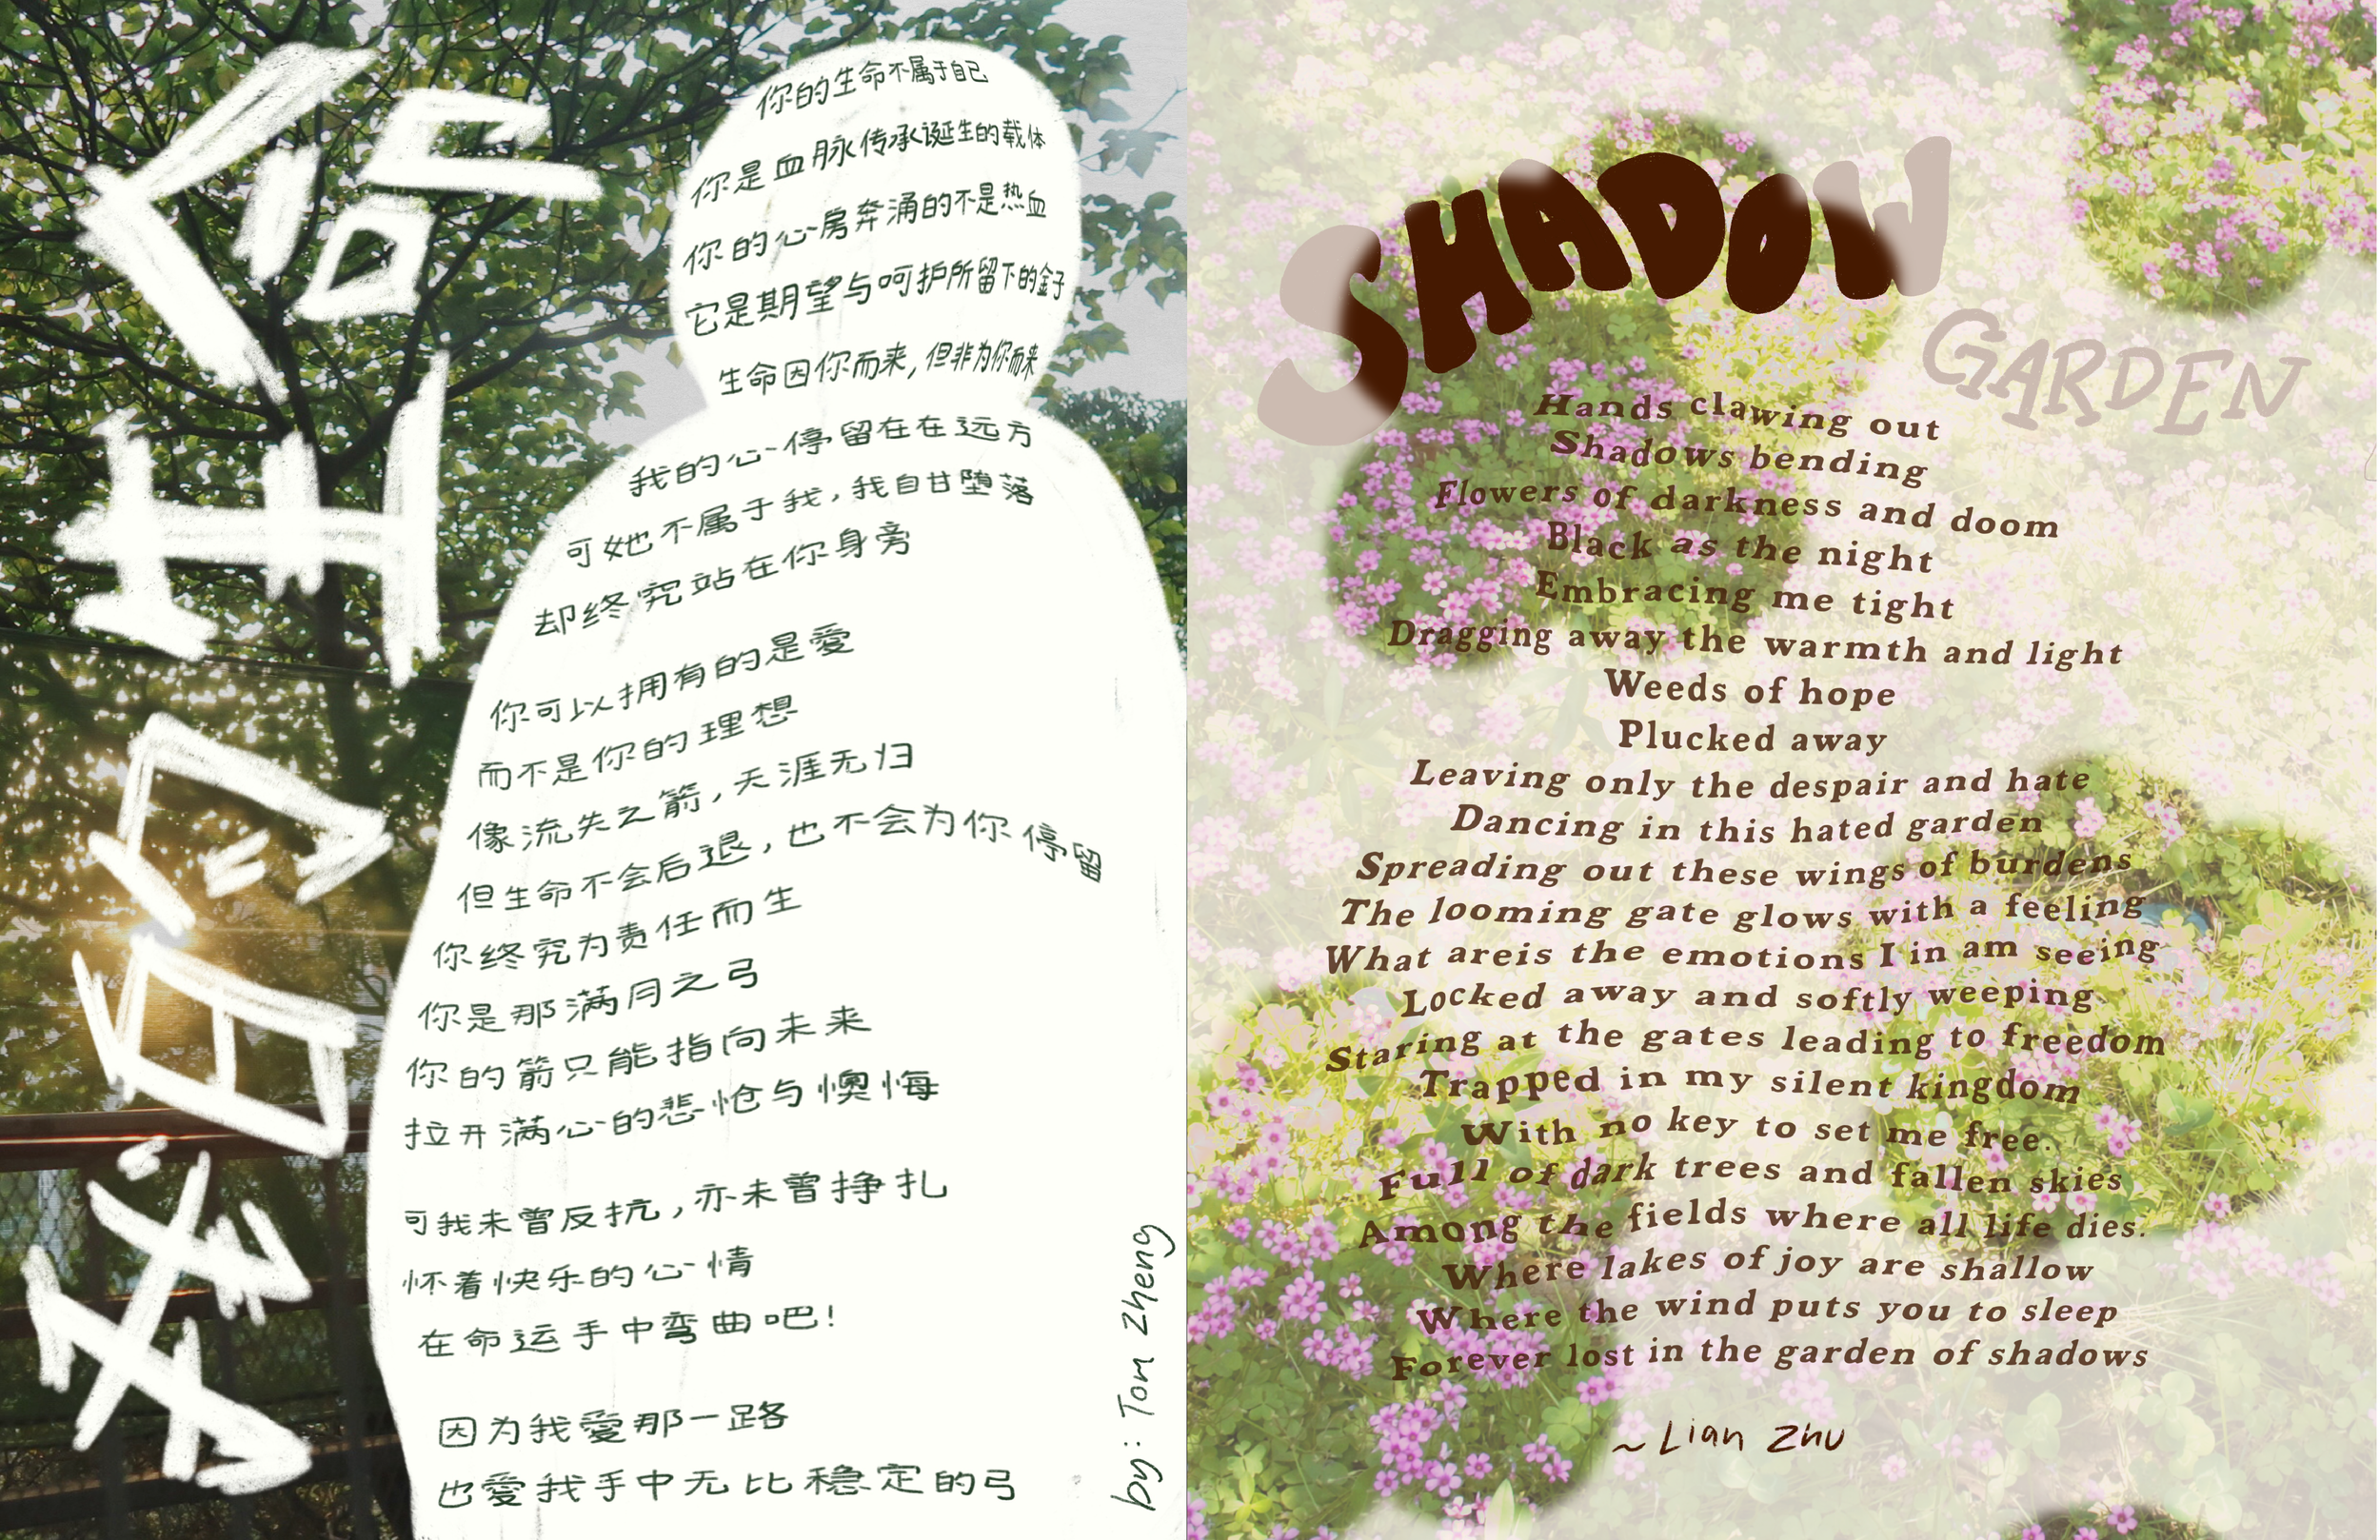 我的生命
你的生命不属于自己
你是血脉传承诞生的载体
你的心房奔涌的不是热血
它是期望与呵护所留下的釒子
生命因你而来,但非为你而来
我的心停留在在远方
可她不属于我,我自甘堕落
却终究站在你身旁
你可以拥有的是愛
而不是你的理想
像流失之箭,天涯无归
但生命不会后退,也不会为你停留
你终究为责任而生
你是那满月之弓
你的箭只能指向未来
拉开满心的悲怆与懊悔
可我未曾反抗,亦未曾挣扎
怀着快乐的心情
在命运手中弯曲吧!
因为我愛那一路
也愛我手中无比稳定的弓
by: Tom Zheng
SHADOW
GARDEN
Hands clawing out
Shadows bending
Flowers of darkness and doom
Black as the night
Embracing me tight
Dragging away the warmth and light
Weeds of hope
Plucked away
Leaving only the despair and hate
Dancing in this hated garden
Spreading out these wings of burdens
The looming gate glows with a feeling
What areis the emotions I in am seeing
Locked away and softly weeping
Staring at the gates leading to freedom
Trapped in my silent kingdom
With no key to set me free.
Full of dark trees and fallen skies
Among the fields where all life dies.
Where lakes of joy are shallow
Where the wind puts you to sleep
Forever lost in the garden of shadows
~ Lian Zhu